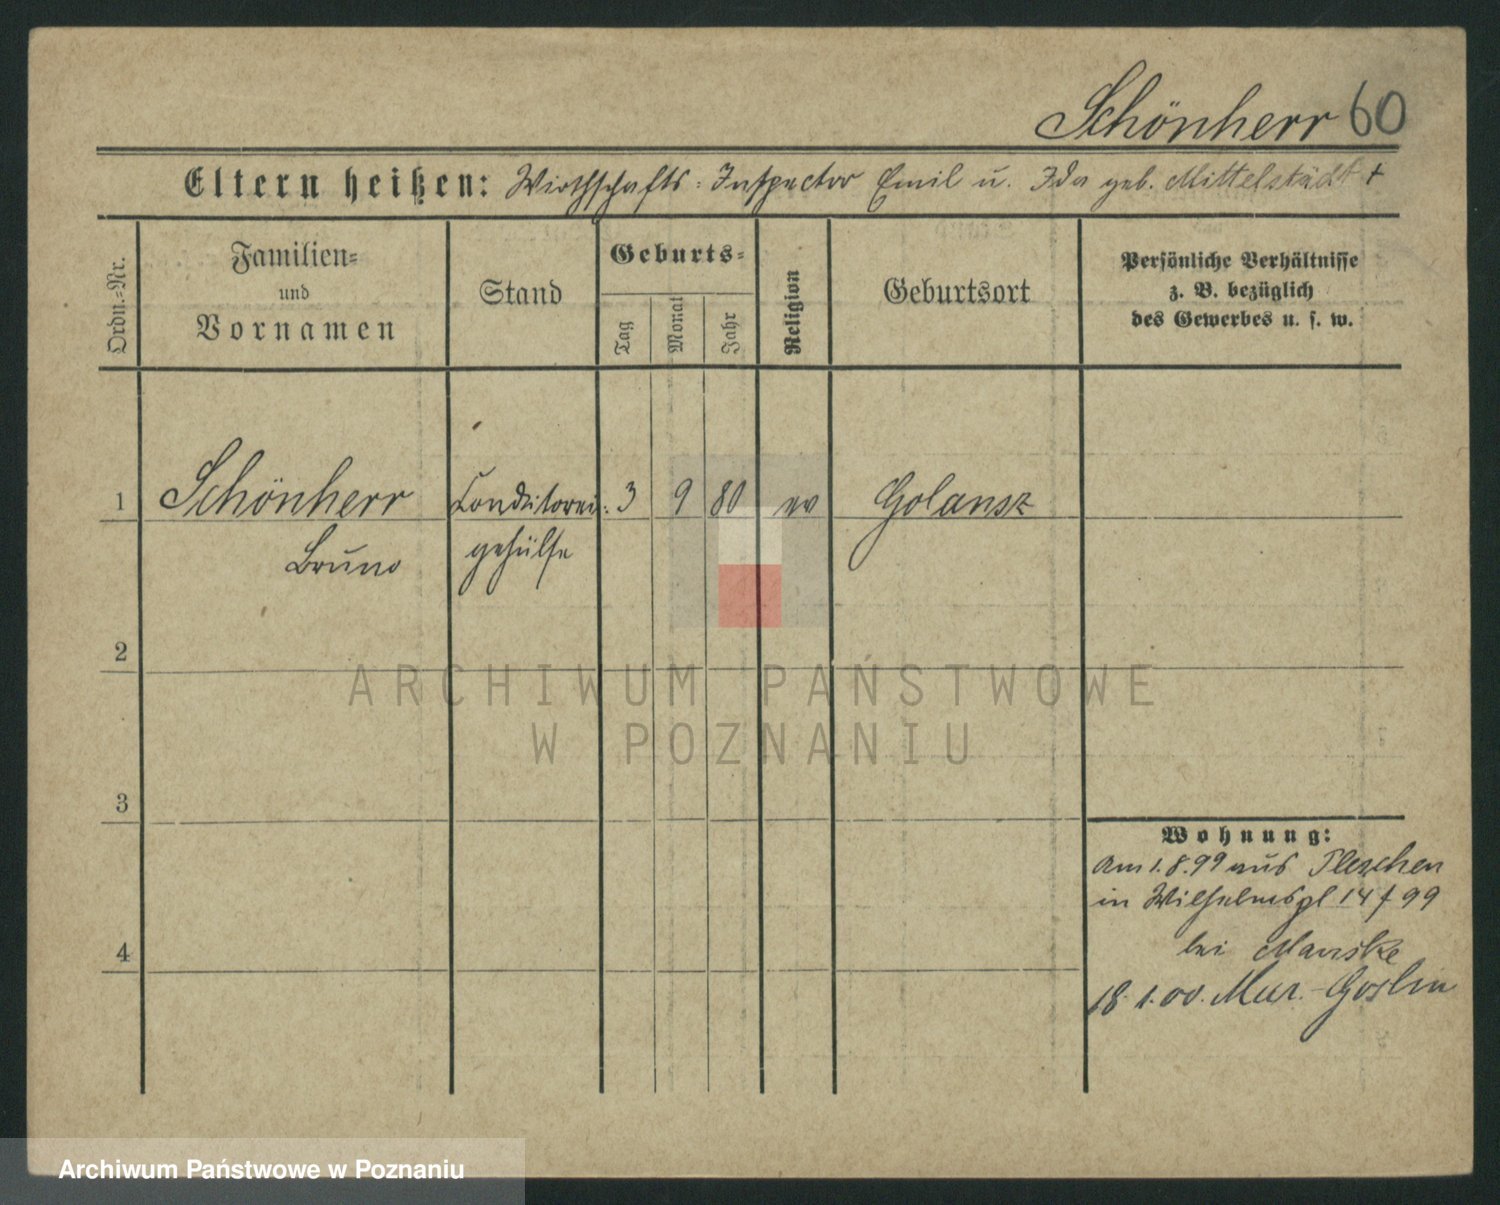 Schönherr 60
Eltern heißen: Wirthschafts-Inspector Emil u. Ida geb. Mittelstädt +
Ordn.-Nr.
Familien-
und
Vornamen
Stand
Geburts-
Tag
Monat
Jahr
Religion
Geburtsort
Persönliche Verhältnisse
z. B. bezüglich
des Gewerbes u. s. w.
1 Schönherr Conditorei- 3 9 80 ev Golansz
Bruno gehülfe
2
3
4
Wohnung:
Am 1.8.99 aus Pleschen
in Wilhelmspl 14 f 99
bei Manske
18.1.00. Mur.-Goslin
ARCHIWUM PAŃSTWOWE
W POZNANIU
Archiwum Państwowe w Poznaniu